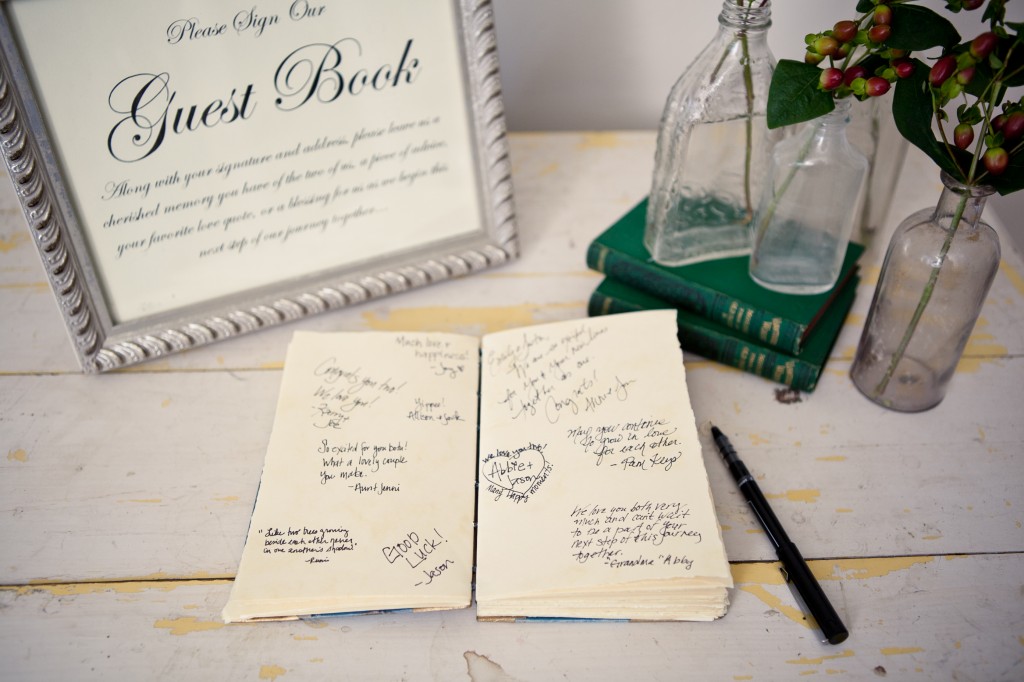 Please Sign Our
Guest Book
Along with your signature and address, please leave us a
cherished memory you have of the two of us, a piece of advice,
your favorite love quote, or a blessing for us as we begin this
next step of our journey together...
Much love +
happiness!
Congrats you two!
We love you!
Yippee!
So excited for you both!
What a lovely couple
you make.
- Aunt Jenni
"Like two trees growing
beside each other never
in one another's shadow"
GOOD
LUCK!
- Jason
for your new lives
together as one.
Congrats!
May you continue
to grow in love
for each other.
- Pam
We love you two!
Abbie +
Jason
Many happy moments!
We love you both very
much and can't wait
to be a part of your
next step of this journey
together.
- "Grandma" Abby